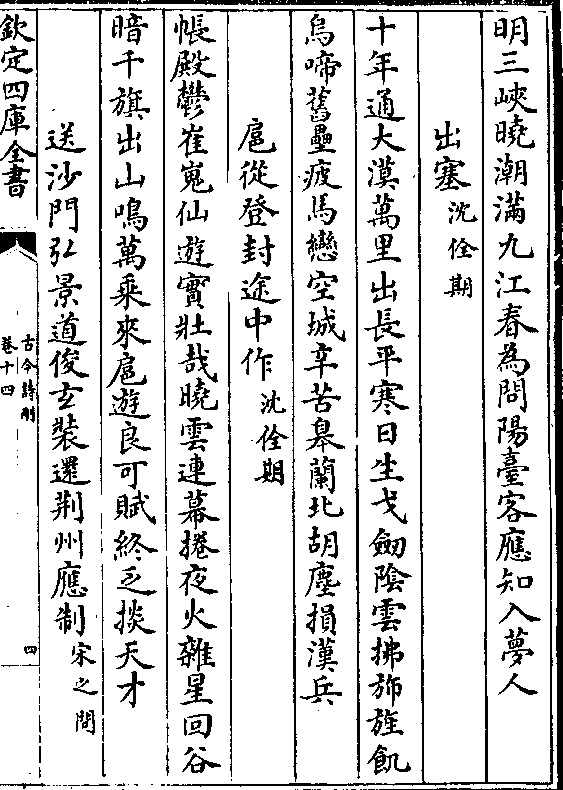 明三峽曉潮滿九江春為問陽臺客應知入夢人
出塞沈佺期
十年通大漠萬里出長平寒日生戈劒陰雲拂斾旌飢
烏啼舊壘疲馬戀空城辛苦臯蘭北胡塵損漢兵
扈從登封途中作沈佺期
帳殿鬱崔嵬仙遊實壯哉曉雲連幕捲夜火雜星回谷
暗千旗出山鳴萬乘來扈遊良可賦終乏掞天才
送沙門弘景道俊玄裝還荆州應制宋之問
欽定四庫全書
古今詩刪
卷十四
四